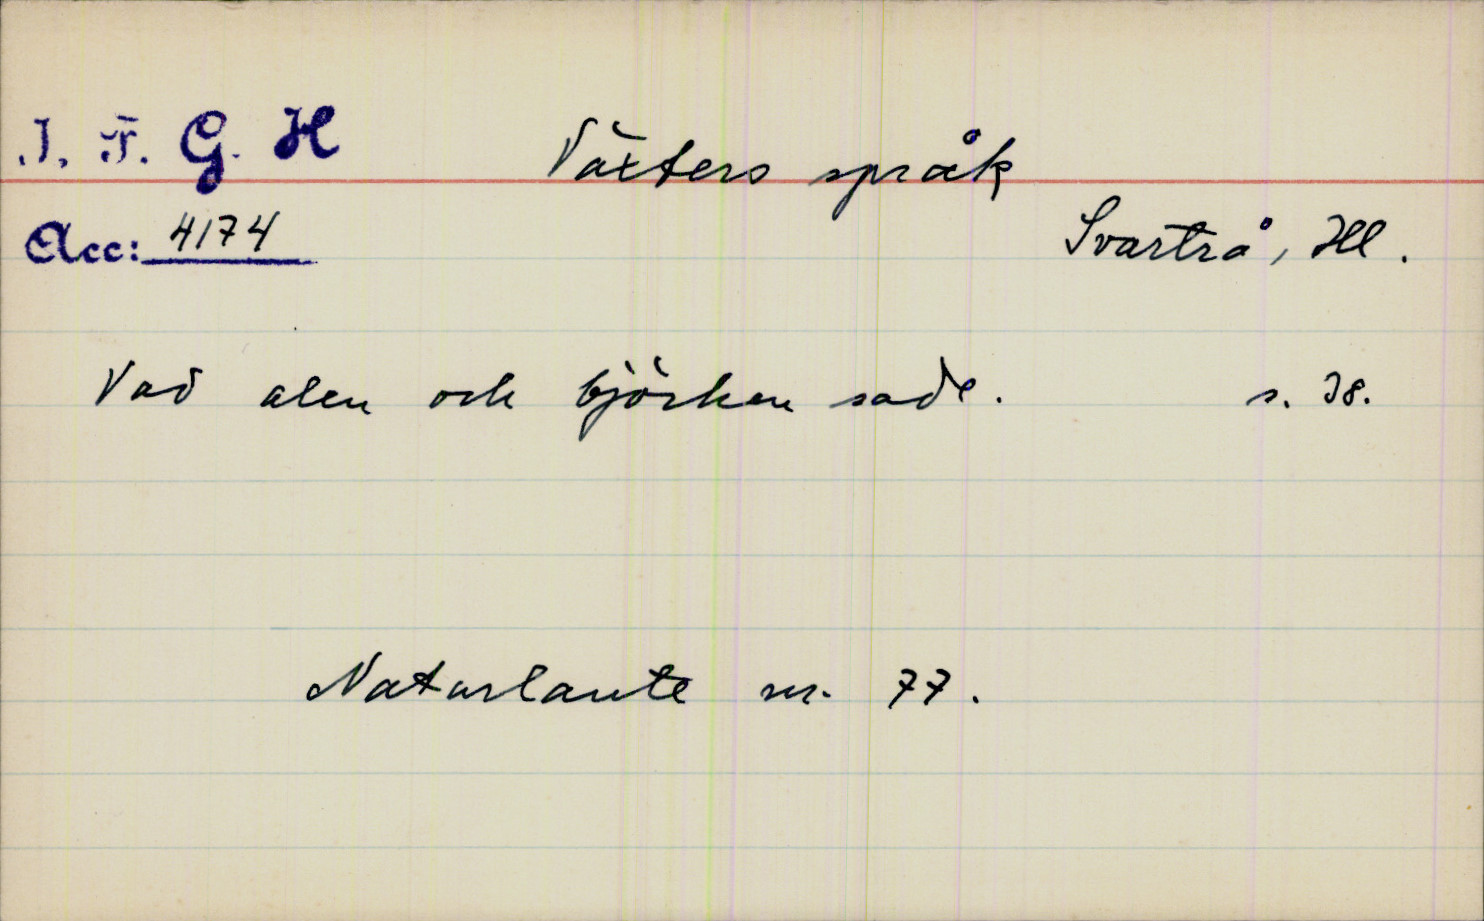 I. F. G. H
Växters språk
Acc: 4174
Svartrå, Hll.
Vad alen och björken sade. s. 38.
Naturlaute nr. 77.